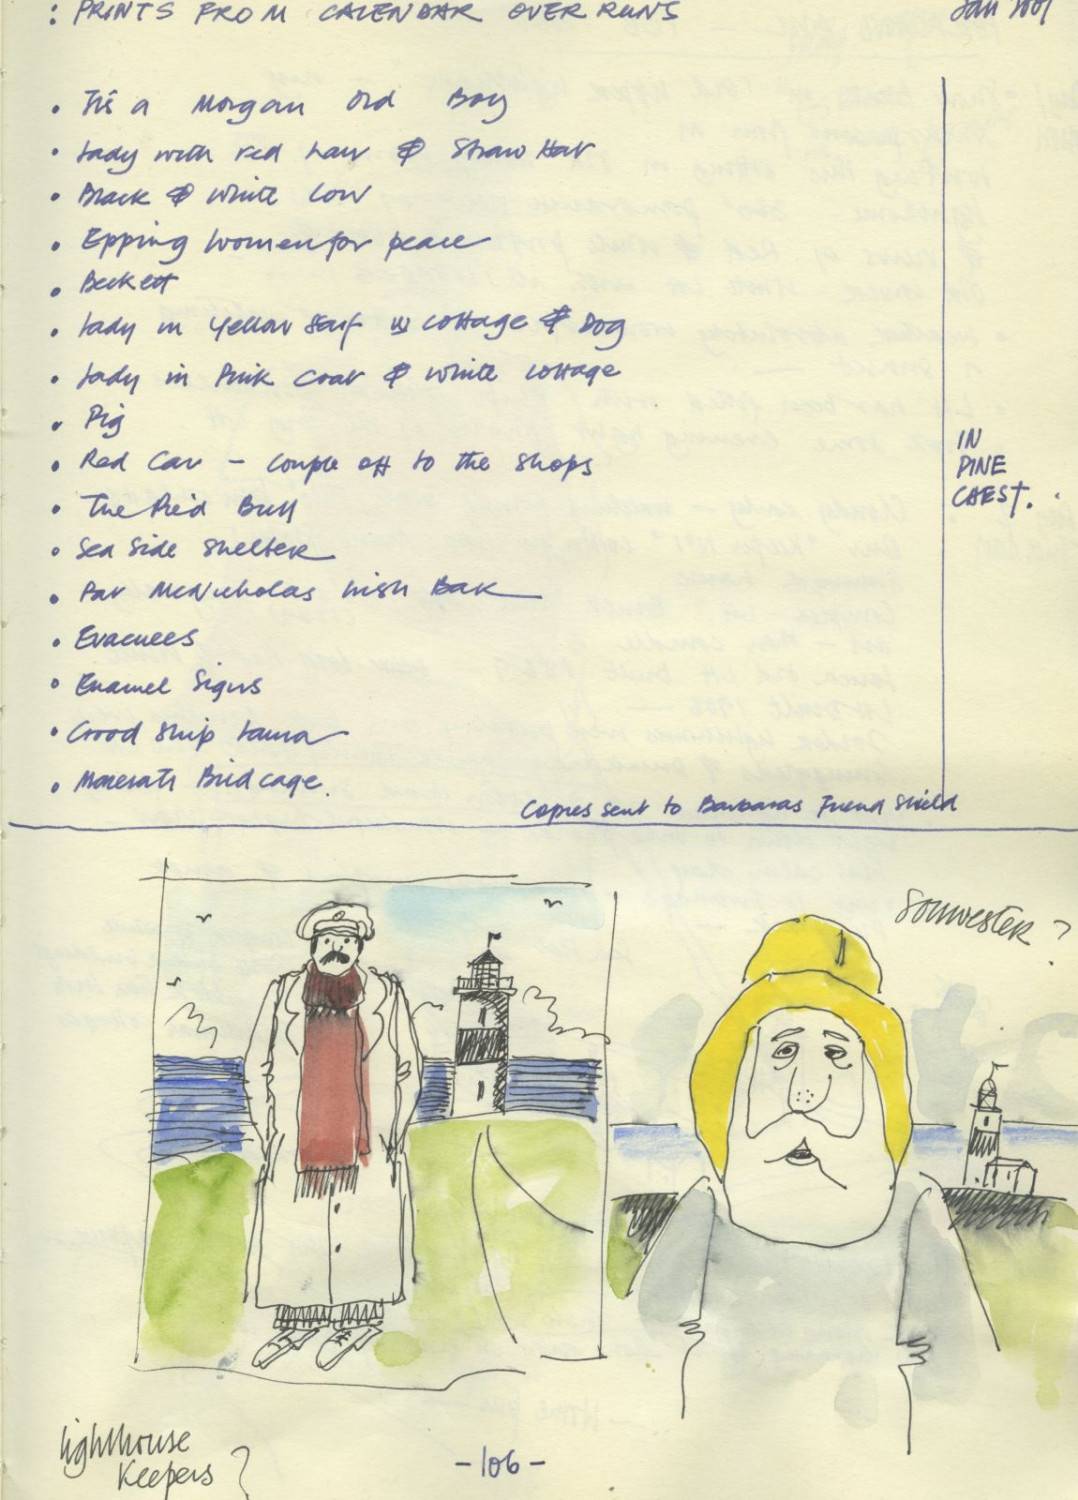 : PRINTS FROM CALENDAR OVER RUNS
Jan 2001
• Tis a Morgan Old Boy
• Lady with red hair & Straw Hat
• Black & White Cow
• Epping Women for peace
• Beckett
• Lady in Yellow Scarf w cottage & Dog
• Lady in Pink Coat & White cottage
• Pig
• Red Car – couple off to the shops
• The Pied Bull
• Sea Side Shelter
• Pat McNicholas Irish Bar
• Evacuees
• Enamel Signs
• Good Ship
• Maserati Birdcage.
IN
PINE
CHEST.
Copies sent to Barbaras Friend
Sou'wester ?
lighthouse
Keepers ?
-106-